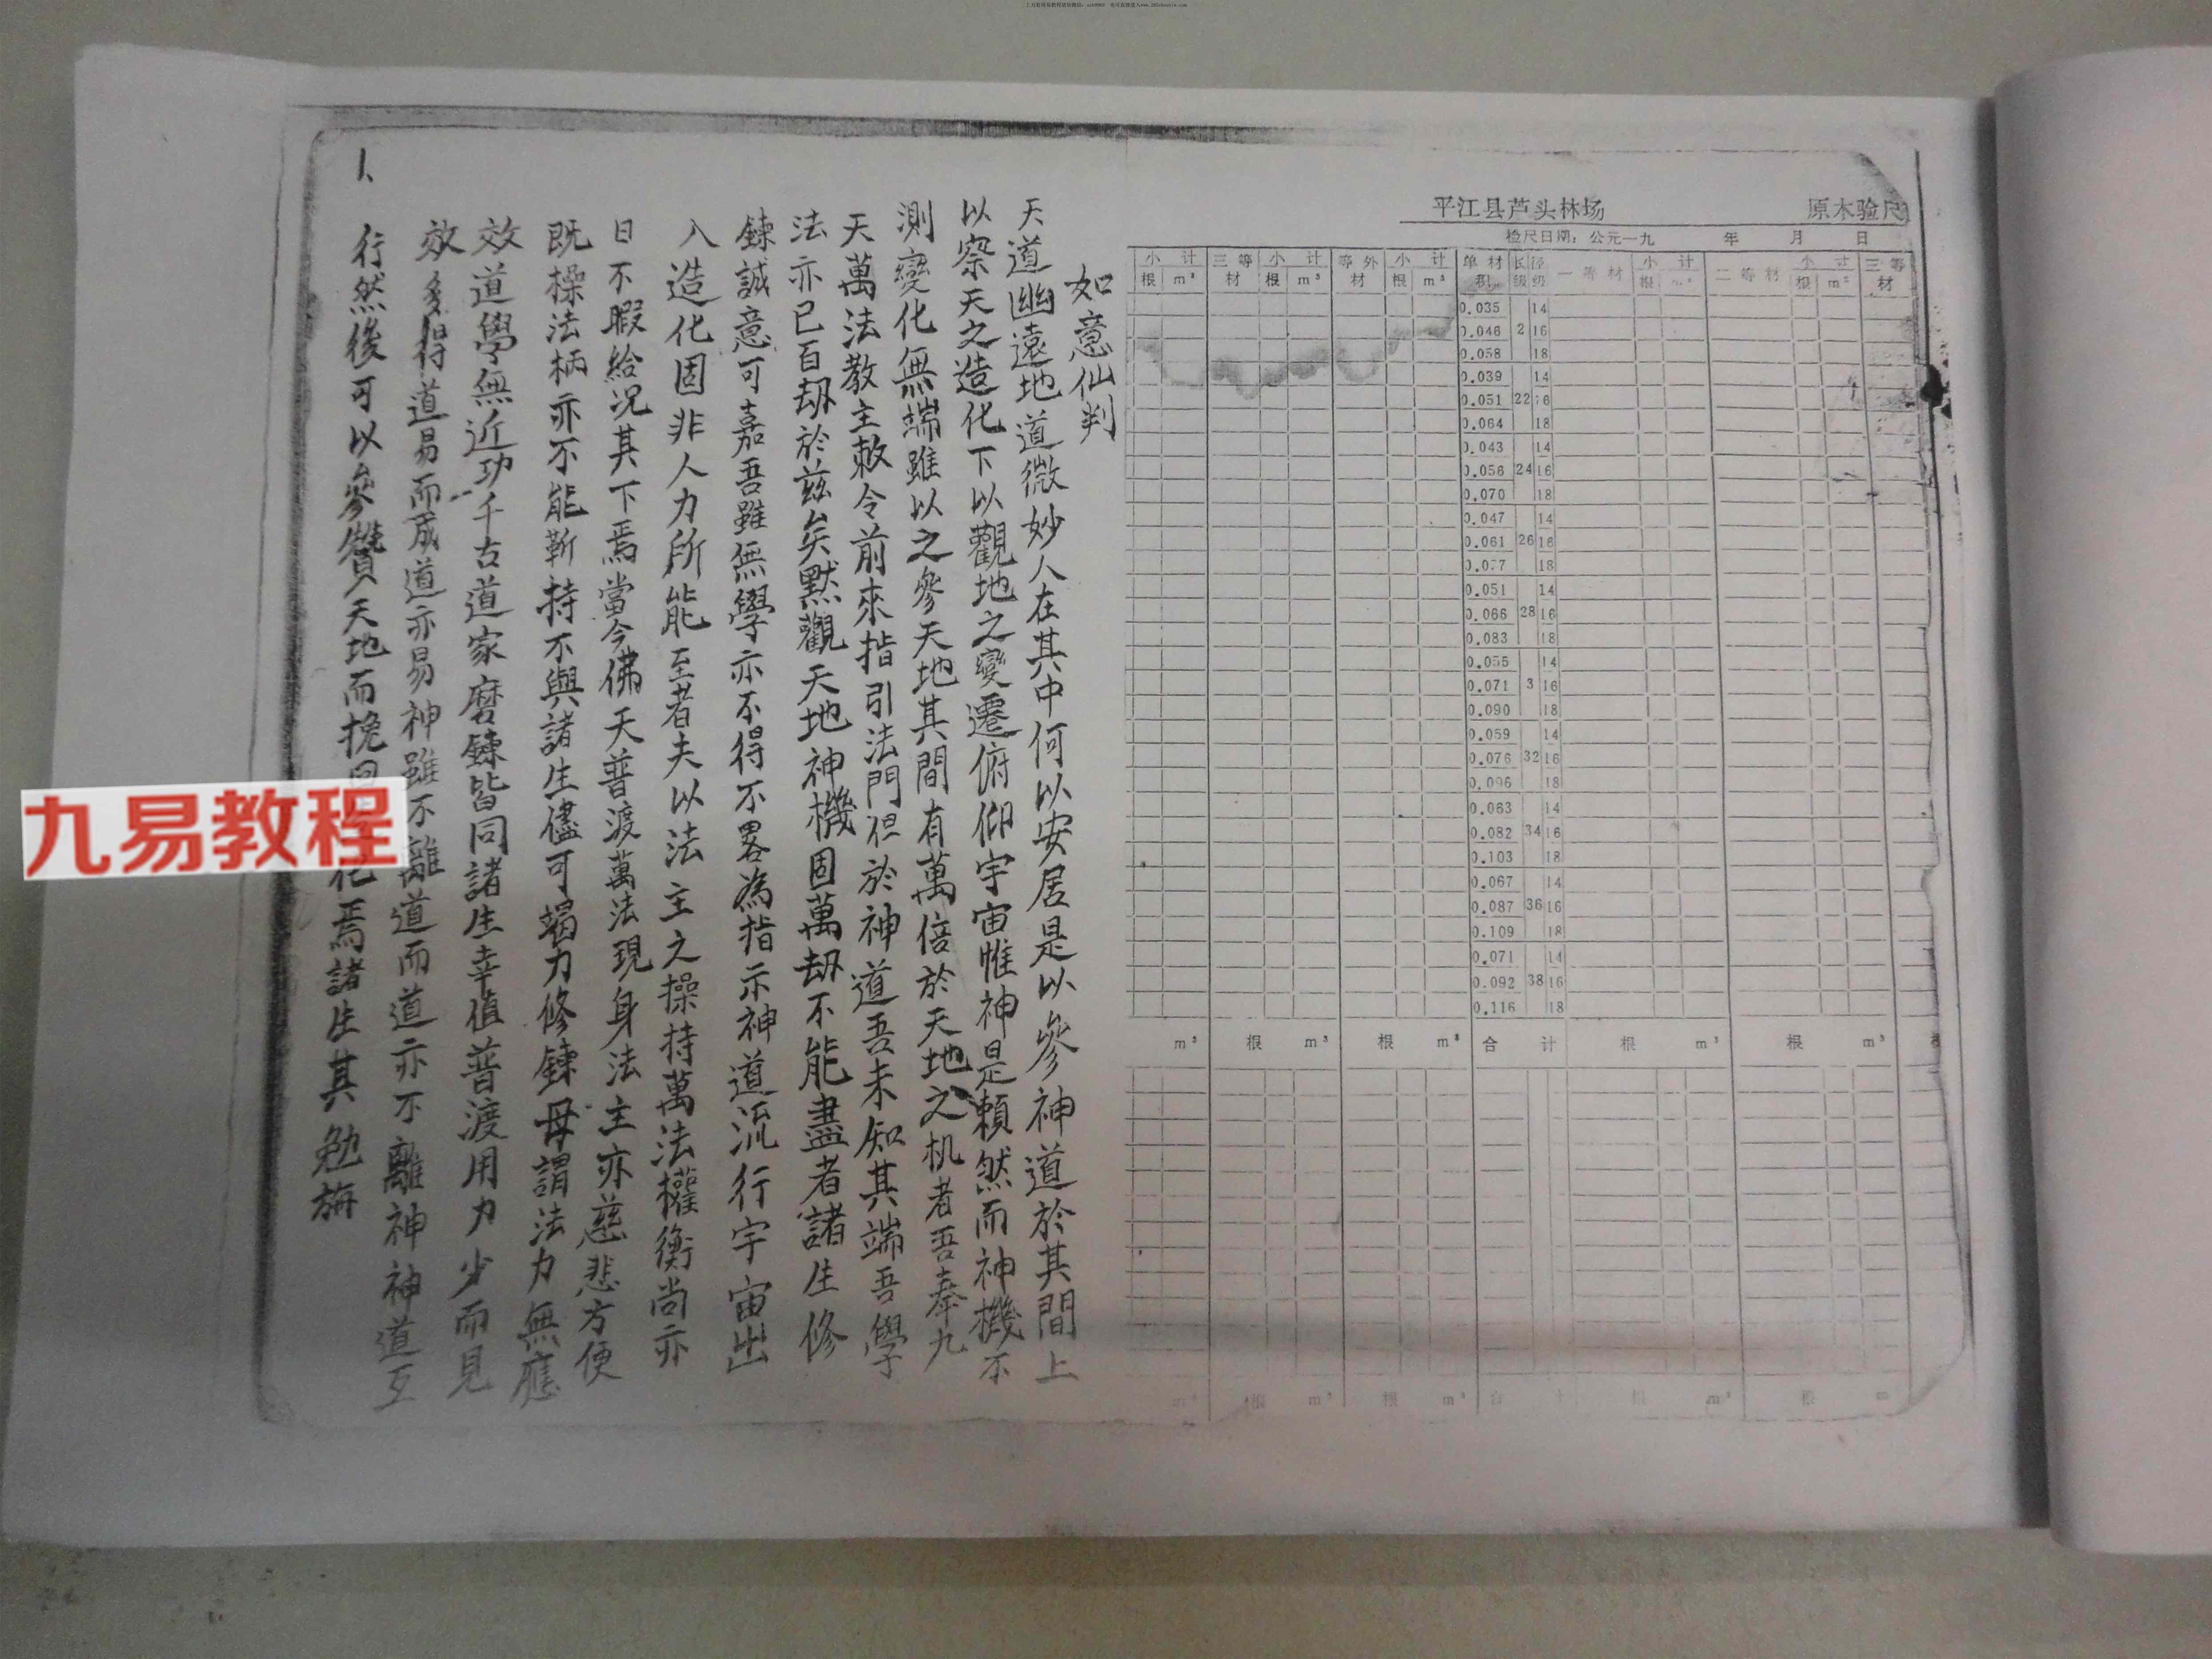 平江县芦头林场 原木验尺
检尺日期：公元一九 年 月 日
小计 三等材 小计 等外材 小计 单材积 长级 径级 一等材 小计 二等材 小计 三等材
根 m³ 根 m³ 根 m³ 根 根 m³
0.035 14
0.046 2 16
0.058 18
0.039 14
0.051 22 16
0.064 18
0.043 14
0.056 24 16
0.070 18
0.047 14
0.061 26 16
0.077 18
0.051 14
0.066 28 16
0.083 18
0.055 14
0.071 3 16
0.090 18
0.059 14
0.076 32 16
0.096 18
0.063 14
0.082 34 16
0.103 18
0.067 14
0.087 36 16
0.109 18
0.071 14
0.092 38 16
0.116 18
m³ 根 m³ 根 m³ 合计 根 m³ 根 m³
m³ 根 m³ 根 m³ 合计 根 m³ 根 m
如意仙判
天道幽遠地道微妙人在其中何以安居是以參神道於其間上
以察天之造化下以觀地之變遷俯仰宇宙惟神是賴然而神機不
測變化無端雖以之參天地其間有萬倍於天地之机者吾奉九
天萬法教主敕令前來指引法門但於神道吾未知其端吾學
法亦已百刼於兹矣默觀天地神機固萬刼不能盡者諸生修
鍊誠意可嘉吾雖無學亦不得不畧為指示神道流行宇宙出
入造化固非人力所能至者夫以法主之操持萬法權衡尚亦
日不暇給况其下焉當今佛天普渡萬法現身法主亦慈悲方便
既操法柄亦不能靳持不與諸生儘可竭力修鍊毋謂法力無應
效道學無近功千古道家磨鍊皆同諸生幸值普渡用力少而見
效多得道易而成道亦易神雖不離道而道亦不離神神道互
行然後可以參贊天地而挽回化焉諸生其勉旃
1、
九易教程